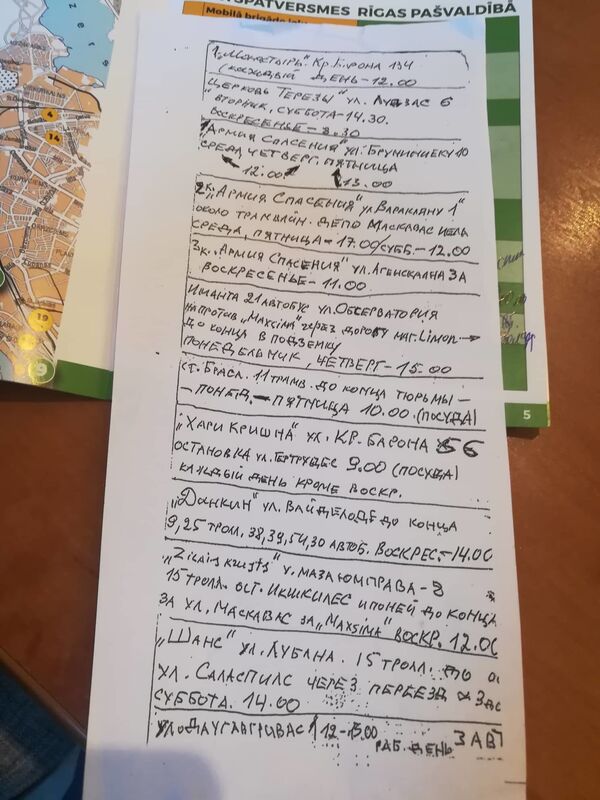 SPATVERSMES RĪGAS PAŠVALDĪBĀ
Mobilā brigāde
1, „Монастырь" Кр. Барона 134
(каждый день - 12.00
Церковь Терезы" ул. Лудзас 6
вторник, суббота - 14.30.
воскресенье - 8.30
"Армия Спасения" ул. Брунениеку 10
среда, четверг. пятница
12.00 13.00
2к. „Армия Спасения" ул Варакляну 1"
около трамвайн. депо Маскавас
среда, пятница - 17.00, субб. - 12.00
3к. „Армия Спасения" ул. Агенскална 3А
воскресенье - 11.00
Иманта 21 автобус ул. Обсерватория
напротив „Maxsima" через дорогу маг. Limon.
до конца в подземку
понедельник, четверг - 15.00
ст. Браса. 11 трамв. до конца тюрьмы -
- понед. - пятница 10.00. (посуда)
"Хари Кришна" ул. Кр. Барона 56
остановка ул. Гертрудес 9.00 (посуда)
каждый день кроме воскр.
„Данкин" ул. Вайделоде до конца
9, 25 тролл. 38, 39, 54, 30 автоб. Воскрес. - 14.00
„Zilais krusts" у. Маза Юмправа - 8
15 тролл. ост. Икшкилес и поней до конца
за ул. Маскавас за „Maxsima" воскр. 12.00
„Шанс" ул. Лубана. 15 тролл. до
ул. Саласпилс через переезд
суббота. 14.00
ул. Даугавгривас 1 12-15.00
раб. день
5
4
14
19
9